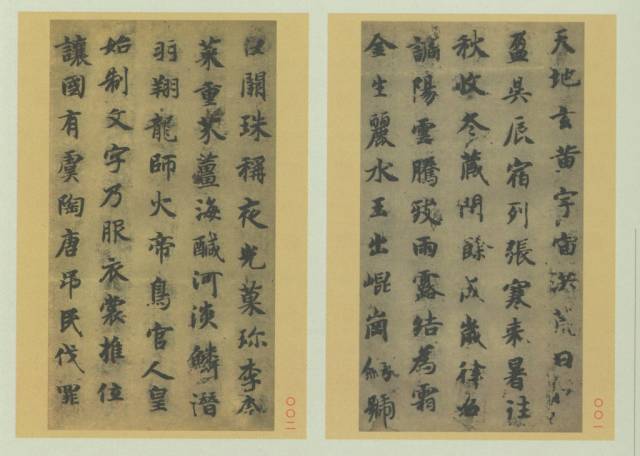 天地玄黃宇宙洪荒日月
盈昃辰宿列張寒來暑往
秋收冬藏閏餘成歲律
調陽雲騰致雨露結為霜
金生麗水玉出崐崗劒號
〇〇一
巨闕珠稱夜光菓珍李柰
菜重芥薑海鹹河淡鱗潛
羽翔龍師火帝鳥官人皇
始制文字乃服衣裳推位
讓國有虞陶唐弔民伐罪
〇〇二